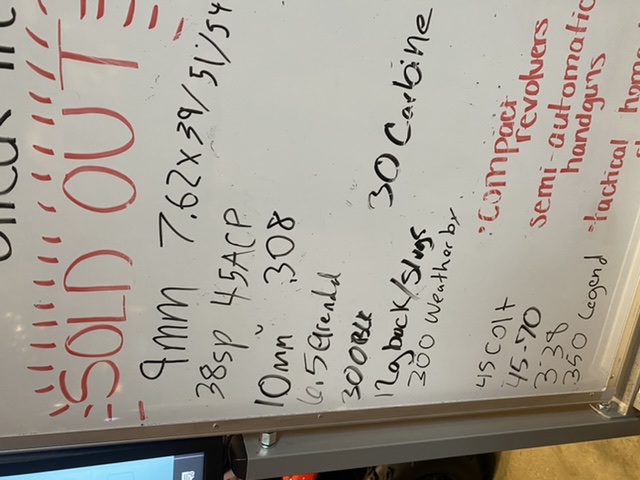 SOLD OUT
9mm 7.62x39/51/54
38sp 45ACP
10mm .308
6.5 Grendel
300BLK
12ga buck/Slugs 30 Carbine
300 Weatherby
45 Colt
45-70
338
350 Legend
compact
revolvers
semi-automatic
handguns
tactical home